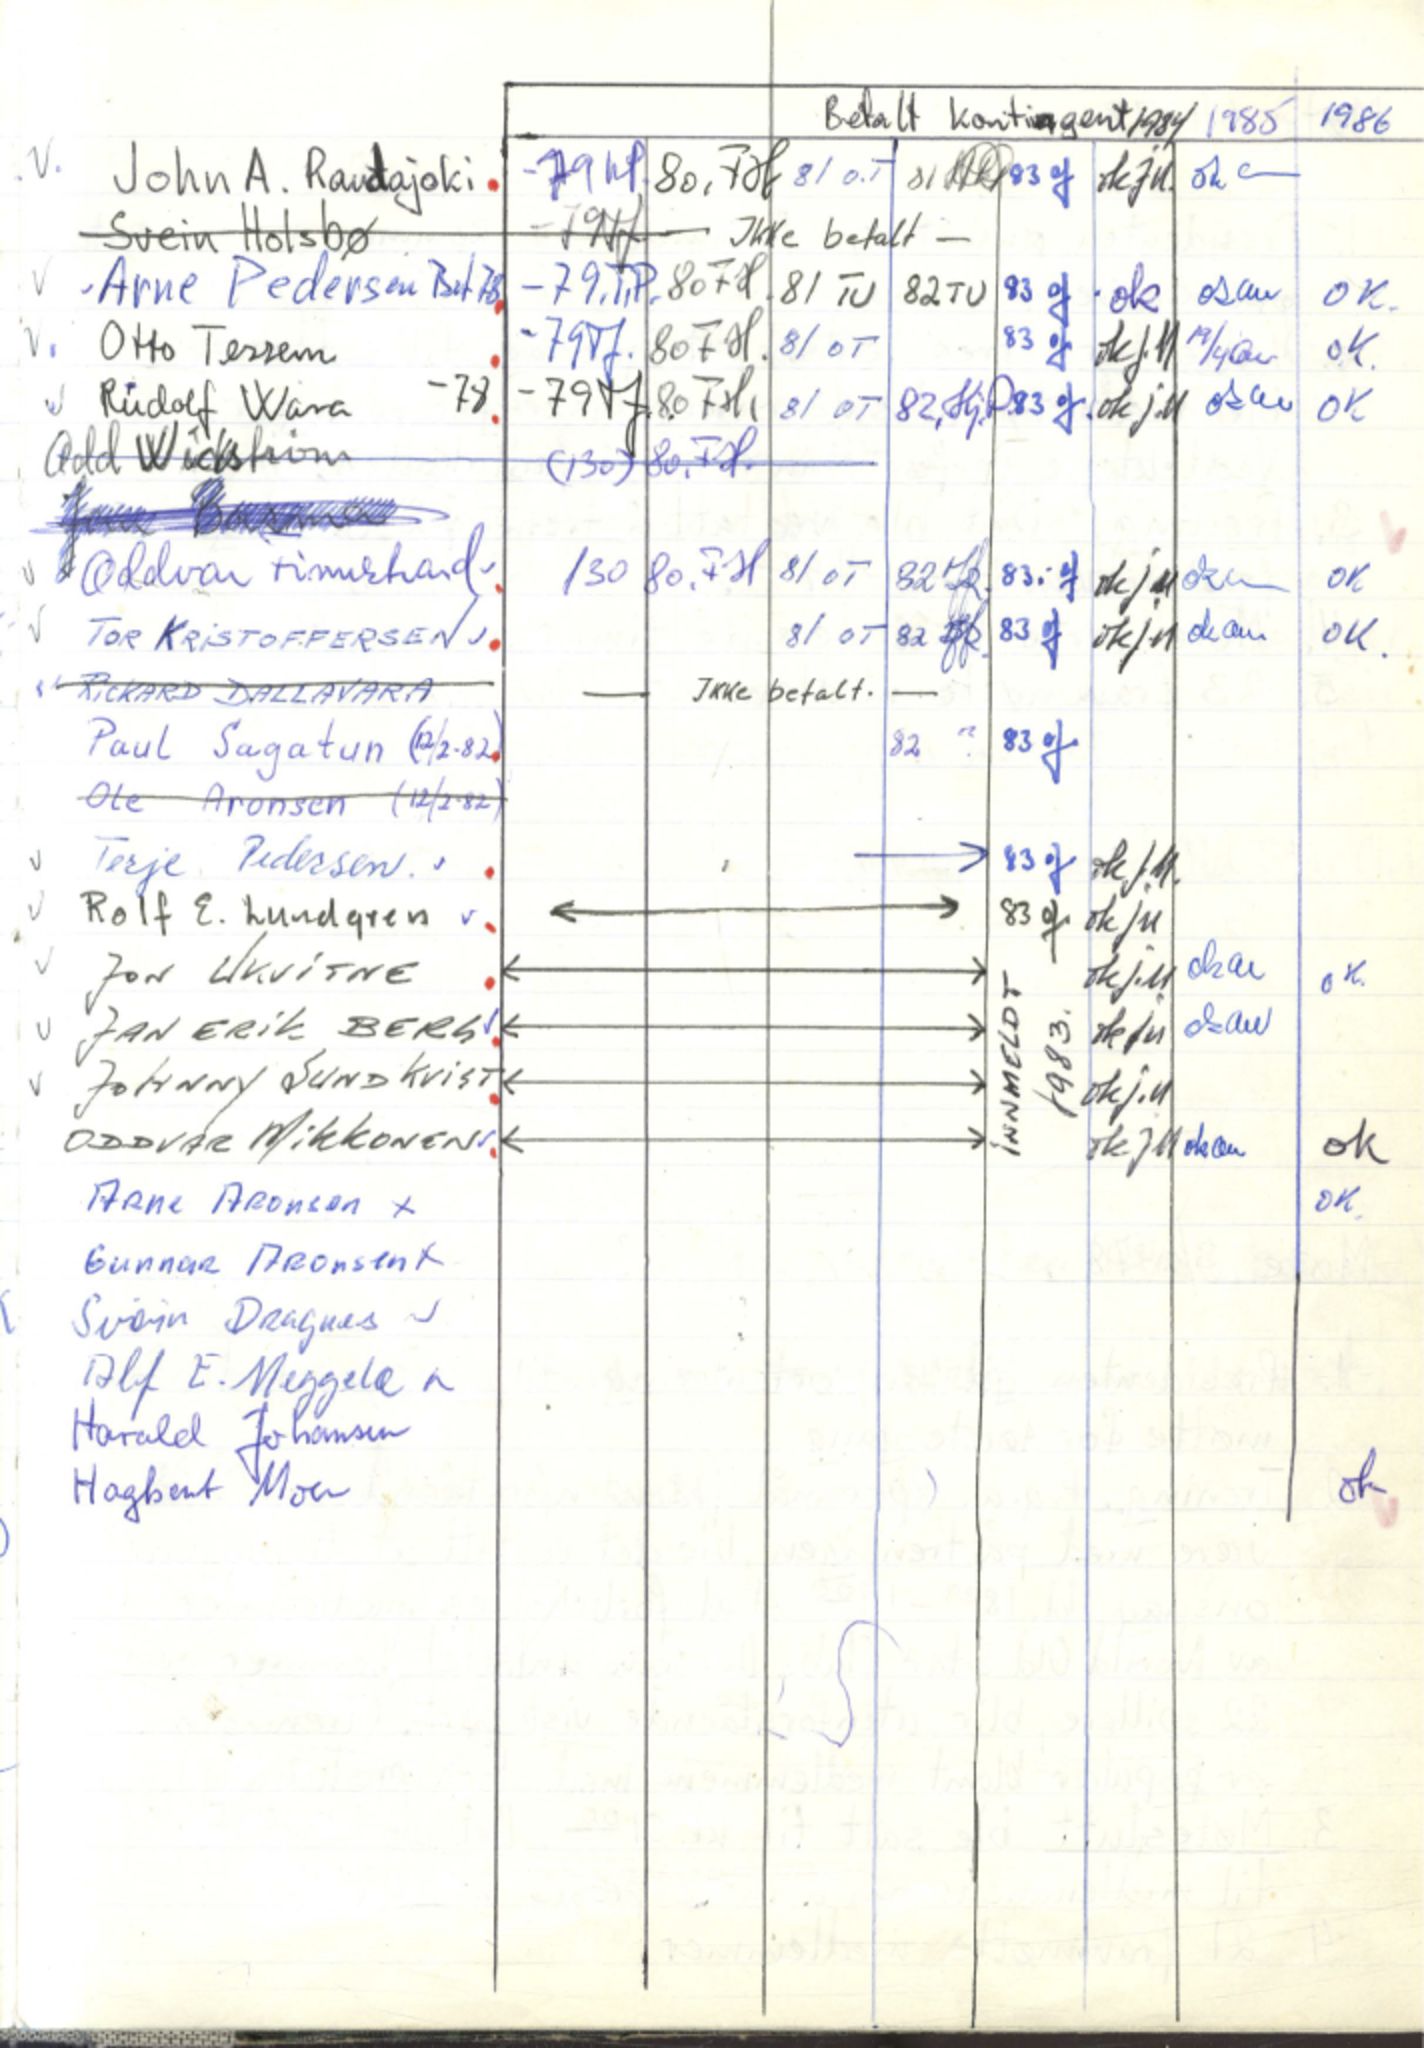 Betalt Kontingent 1984 1985 1986
V. John A. Raudajoki -79 80. FH 81 O.T 81 83 g ok J.M. ok
Svein Holsbø -79 Ikke betalt -
V Arne Pedersen Bet 78 -79.T.P. 80 FH. 81 TU 82 TU 83 g ok ok au OK.
V. Otto Tessem -79 80 FH. 81 OT 83 g ok j.M 19/4 au OK.
V Rudolf Wara -78 -79 80 FH. 81 OT 82. Hj.P. 83 g. ok j.M ok au OK
Odd Wickstrøm (130) 80. FH.
V Oddvar 130 80. FH 81 OT 82 83. g ok j.M ok OK
V TOR KRISTOFFERSEN V 81 OT 82 83 g ok j.M ok au OK.
RICKARD DALLAVARA — Ikke betalt. —
Paul Sagatun (12/2-82) 82 83 g.
Ole Aronsen (12/2-82)
V Terje Pedersen. V 83 g ok j.M.
V Rolf E. Lundgren V 83 g ok j.M
V JON UKVITNE ok j.M ok au OK.
V JAN ERIK BERG V ok j.M ok au
V JOHNNY SUNDKVIST ok j.M
ODDVAR MIKKONEN V ok J.M ok au ok
INNMELDT 1983.
Arne Aronsen x OK.
Gunnar Aronsen x
Svein Dragnes V
Alf E. Meggela
Harald Johansen
Hagbart Moen ok